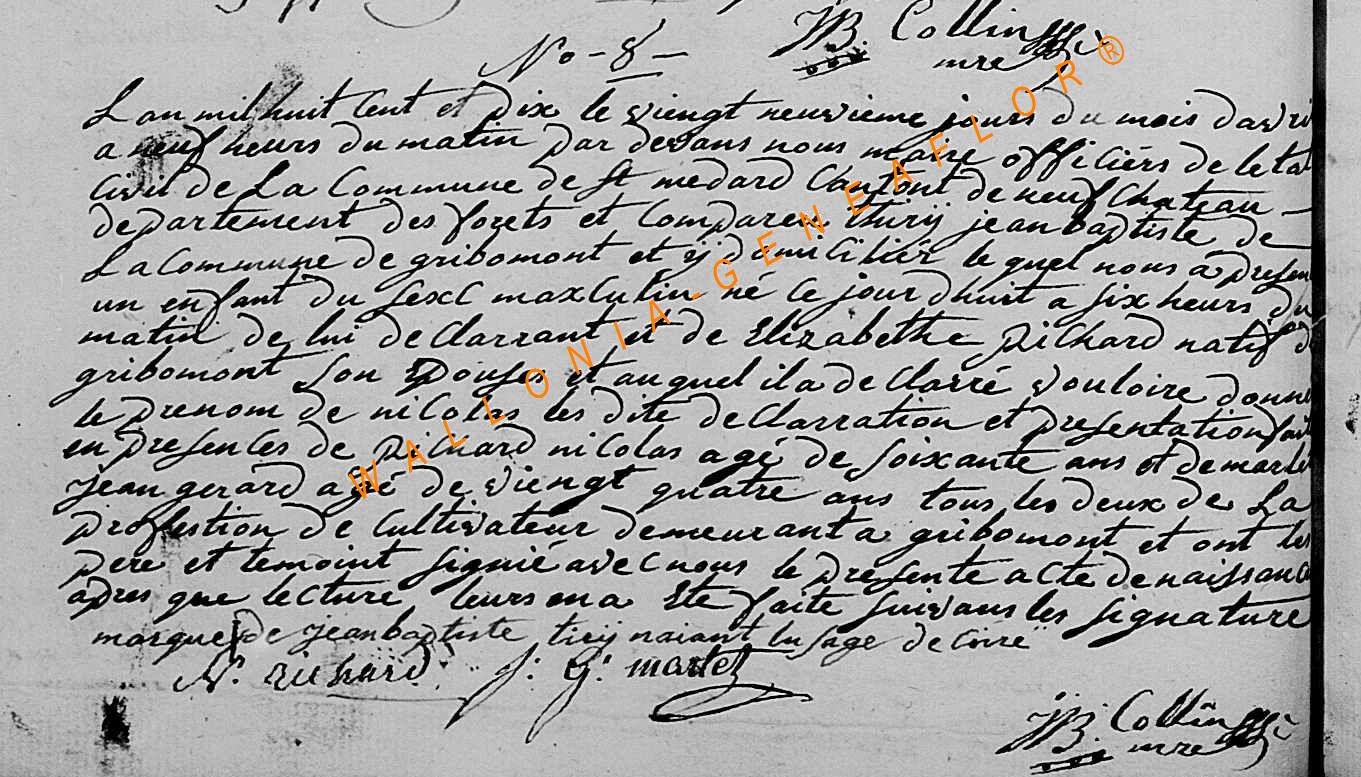 JB. Collin
mre
No - 8 -
L an mil huit Cent et Dix le viengt neuvieme jours du mois Davri
a neuf heurs Du matin par devans nous maire officiérs de letat
Civil de La Commune de St medard Cantont de neufchateau -
departement des forets et Compareu thirij jean baptiste de
La Commune de gribomont et ij domicilier le quel nous a presen
un enfant Du Sexc maxculin né Ce jour dhuit a six heurs Du
matin de lui declarrant et de Elizabethe Richard natif d
gribomont son Epouses et au quel il a declarré vouloire donne
le prenom de nicolas les dite declarration et presentation fait
en presences de Richard nicolas agé de soixante ans et de
jean gerard agé de viengt quatre ans tous les deux de La
profestion de Cultivateur demeurant a gribomont et ont les
pere et temoint signié avec nous le presente acte de naissance
apres que lecture leurs en a Ete faite suivans les signature
marque de jean baptiste tirij naiant lusage de
N. richard J: G: martel
JB. Collin
mre
WALLONIA-GENEAFLOR®